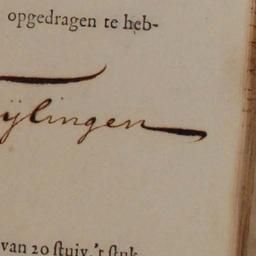 opgedragen te heb-
ÿlingen
van 20 ſtuiv. 't ſtuk